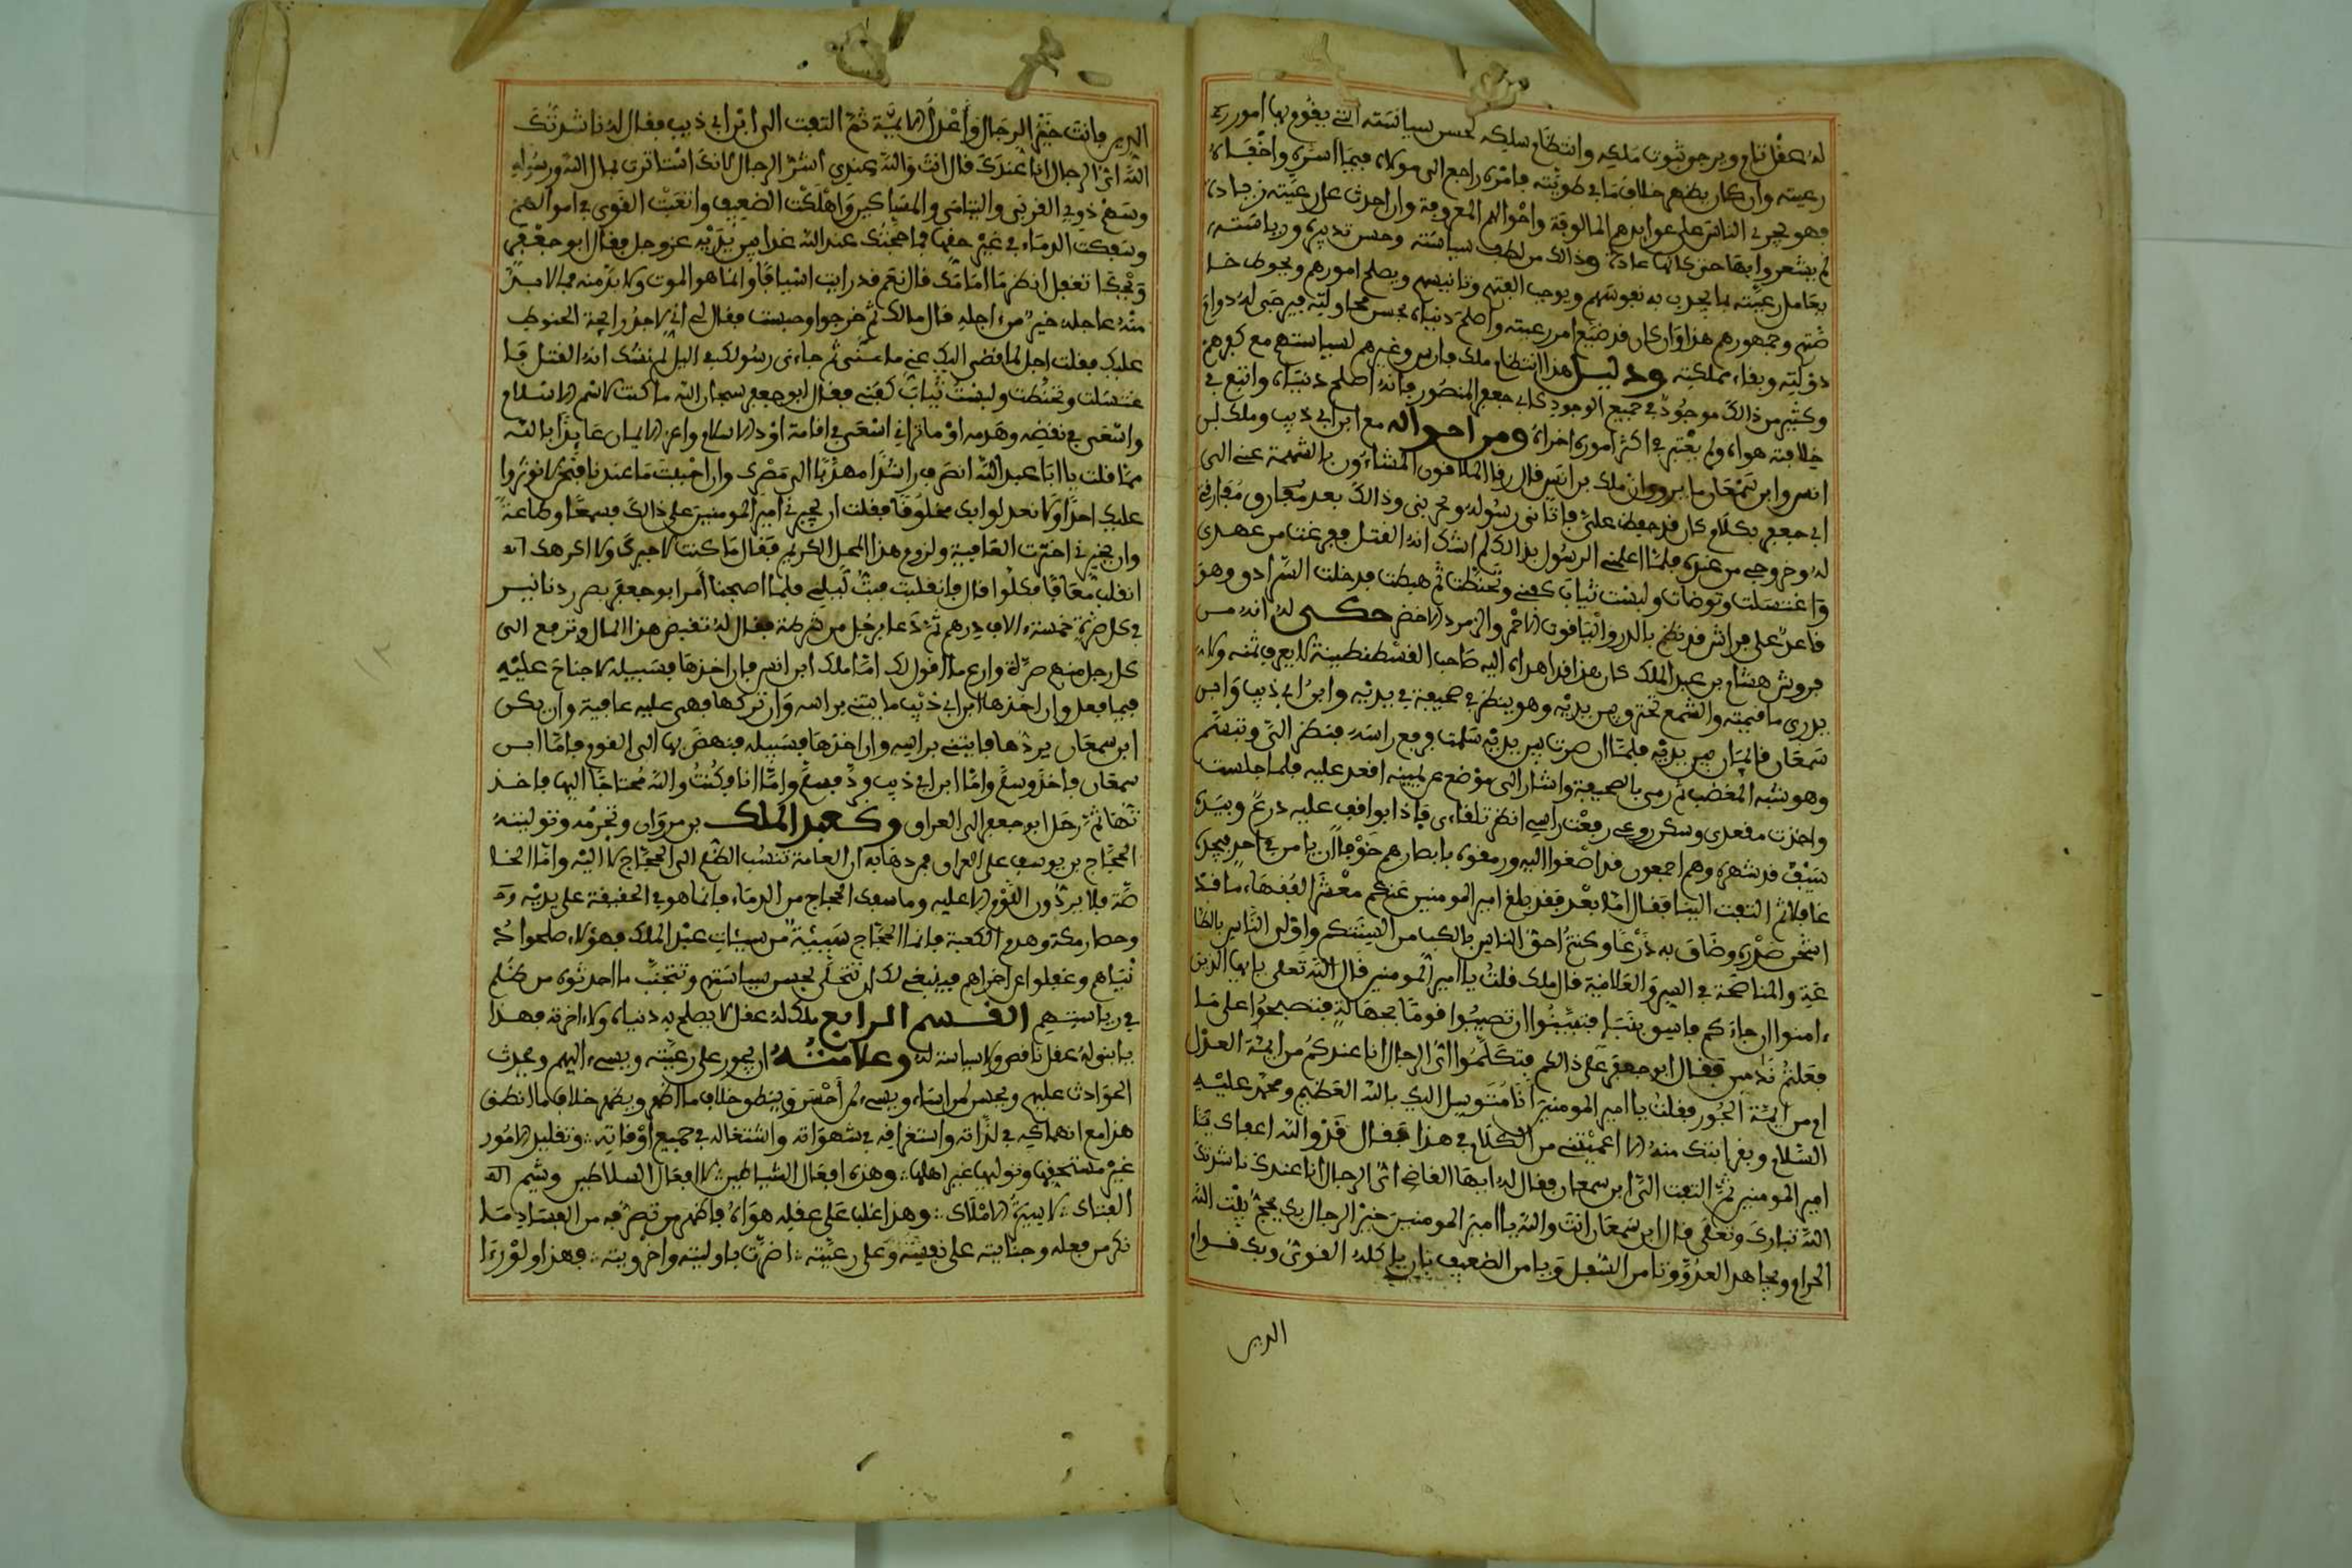 له عقل تام ويرجو ثبوت ملكه وانتظام سلكه بحسن سياسته التي يقوم بها امور
رعيته وان كان يظهر خلاف ما في طويته فامره راجع الى مولاه فيما اسره واخفاه
فهو يجري الناس على عوايدهم المالوفة واحوالهم المعروفة وان احدث على رعيته زيادة
لم يشعروا بها حتى كانها عادة وذالك من لطف سياسته وحسن تدبيره ورياسته
يعامل رعيته بما يجذب به نفوسهم ويوجب الفتهم وتانيسهم ويصلح امورهم ويحوط خا
صتهم وجمهورهم هذا وان كان قد ضيع امر رعيته واصلح دنياه بحسن محاولته فيرجى له دوام
دولته وبقاء مملكته ودليل هذا انتظام ملك فارس وغيرهم لسياستهم مع كفرهم
وكثير من ذالك موجود في جميع الوجود كابي جعفر المنصور فانه اصلح دنياه واتبع في
خلافته هواه ولم يعتبر في اكثر اموره اخراه ومن احواله مع ابن ابي ذيب وملك بن
انس وابن سمعان ما روي ان ملك بن انس قال رفا الملاقون المشاءون بالنميمة عني الى
ابي جعفر بكلام كان قد حفظ علي فاتاني رسوله وخزني وذالك بعد مفارق مفارقة
له وخروجي من عنده فلما اعلمني الرسول بذالك لم اشك انه القتل ففرغت من عهدي
واغتسلت وتوضات ولبست ثياب كفني وتحنطت ثم هبطت فدخلت السرادق وهو
قاعد على فراش قد نظم بالدر والياقوت الاحمر والزمرد الاخضر حكي له انه من
فروش هشام بن عبد الملك كان هذا قد اهداه اليه صاحب القسطنطينة لا يعرف ثمنه ولا
يدرى ما قيمته والشمع تحترق بين يديه وهو ينظر في صحيفة في يديه وابن ابي ذيب وابن
سمعان قاءمان بين يديه فلما ان صرت بين يديه سلمت ورفع راسه فنظر الي وتبسم
وهو شبه المغضب ثم رمى بالصحيفة واشار الى موضع عن يمينه اقعد عليه فلما جلست
واخذت مقعدي وسكن روعي رفعت راسي انظر تلقاءي فاذا بواقف عليه درع وبيده
سيف قد شهره وهم اجمعون قد اصغوا اليه ورمقوه بابصارهم خوفا ان يامر في احد فيجده
غافلا ثم التفت الينا فقال اما بعد فقد بلغ امير المومنين عنكم معشر الفقهاء ما قد
اشحن صدره وضاق به ذرعا وكنتم احق الناس بالكف من السنتكم واولى الناس بالطا
عة والمناصحة في السر والعلانية قال ملك قلت يا امير المومنين قال الله تعلى يا ايها الذين
ءامنوا ان جاءكم فاسق بنبإ فتبينوا ان تصيبوا قوما بجهالة فتصبحوا على ما
فعلتم ندمين فقال ابو جعفر على ذالكم فتكلموا اي الرجال انا عندكم من ايمة العدل
ام من ايمة الجور فقلت يا امير المومنين انا متوسل اليك بالله العظيم وبمحمد عليه
السلام وبقرابتك منه الا اعفيتني من الكلام في هذا فقال قد والله اعفاك يا
امير المومنين ثم التفت الى ابن سمعان فقال له ايها القاضي اي الرجال انا عندك ناشدتك
الله تبارك وتعلى قال ابن سمعان انت والله يا امير المومنين خير الرجال بك يحج بيت الله
الحرام ويجاهد العدو وتامن السبل ويامن الضعيف ان ياكله القوي وبك قوام
الدين
الدين فانت خير الرجال واعدل الايمة ثم التفت الى ابن ابي ذيب فقال له ناشدتك
الله اي الرجال انا عندك قال انت والله عندي اشر الرجال لانك استاثرت بمال الله ورسوله
وسهم ذوي القربى واليتامى والمساكين واهلكت الضعيف واتعبت القوي في اموالهم
وسفكت الدماء في غير حقها فما حجتك عند الله غدا بين يديه عز وجل فقال ابو جعفر
ويحك اتعقل انظر ما امامك قال نعم قد رايت اسيافا وانما هو الموت ولا بد منه فما لا بد
منه عاجله خير من ءاجله قال مالك ثم خرجوا وحبست فقال لي اني لاجد رايحة الحنوط
عليك فقلت اجل لما افضى اليك عني ما افضى ثم جاءني رسولك في اليل لم نشك انه القتل فا
غتسلت وتحنطت ولبست ثياب كفني فقال ابو جعفر سبحان الله ما كنت لاثم الاسلام
واسعى في نقضه وهدمه او ما تراني اسعى في اقامة اود الاسلام واعزاز الايمان عايذا بالله
مما قلت يا ابا عبد الله انصرف راشدا مهديا الى مصرك وان احببت ما عندنا فنحن لا نوثر
عليك احدا ولا نعدل بك مخلوقا فقلت ان يجبرني امير المومنين على ذالك فسمعا وطاعة
وان يخيرني اخترت العافية ولزوم هذا المحل الكريم فقال ما كنت لاجبرك ولا اكرهك
انقلب معافا مكلوا قال فانقلبت فبت ليلتي فلما اصبحنا امر ابو جعفر بصرر دنانير
في كل صرة خمسة ءالاف درهم ثم دعا برجل من شرطته فقال له تقبض هذا المال وترفع الى
كل رجل منهم صرة وارع ما اقول لك اما ملك ابن انس فان اخذها فسبيله لا جناح عليه
فيما فعل وان اخذها ابن ابي ذيب فايتني براسه وان تركها فهي عليه عافية وان يكن
ابن سمعان يردها فايتني براسه وان اخذها فسبيله فنهض بها الى القوم فاما ابن
سمعان فاخذ وسلم واما ابن ابي ذيب فرد فسلم واما انا فكنت والله محتاجا اليها فاخذ
تها ثم رحل ابو جعفر الى العراق وكعبد الملك بن مروان وتجرمه وتوليته
الحجاج بن يوسف على العراق فمن دهايه ان العامة تنسب الظلم الى الحجاج لا اليه واما الخا
صة فلا يردون اللوم الا عليه وما سفك الحجاج من الدماء فانما هو في الحقيقة على يديه
وحصار مكة وهدم الكعبة فانما الحجاج سيئة من سيئات عبد الملك فهولاء صلحوا د
نياهم وغفلوا عن اخراهم فينبغي لك ان تتحلى بحسن سياستهم وتتجنب ما احدثوه من ظلم
في رياستهم القسم الرابع ملك له عقل لا يصلح به دنياه ولا ءاخرته فهذا
يا بني له عقل ناقص ولا سياسة له وعلامته ان يجور على رعيته ويسيء اليهم ويحدث
الحوادث عليهم ويحسن لمن اساء ويسيء لمن احسن ويبطن خلاف ما اظهر ويظهر خلاف ما ابطن
هذا مع انهماكه في لذاته واستغراقه في شهواته واشتغاله في جميع اوقاته وتقليد الامور
غير مستحقها وتوليها غير اهلها وهذه افعال الشياطين لا افعال السلاطين وشيم
الفتاك لا سيرة الاملاك وهذا غلب على عقله هواه فاظهر من تصرفه من الفساد ما
نكر من فعله وجنايته على نفسه وعلى رعيته اضرت باوليته واخرويته فهذا ولو رءا